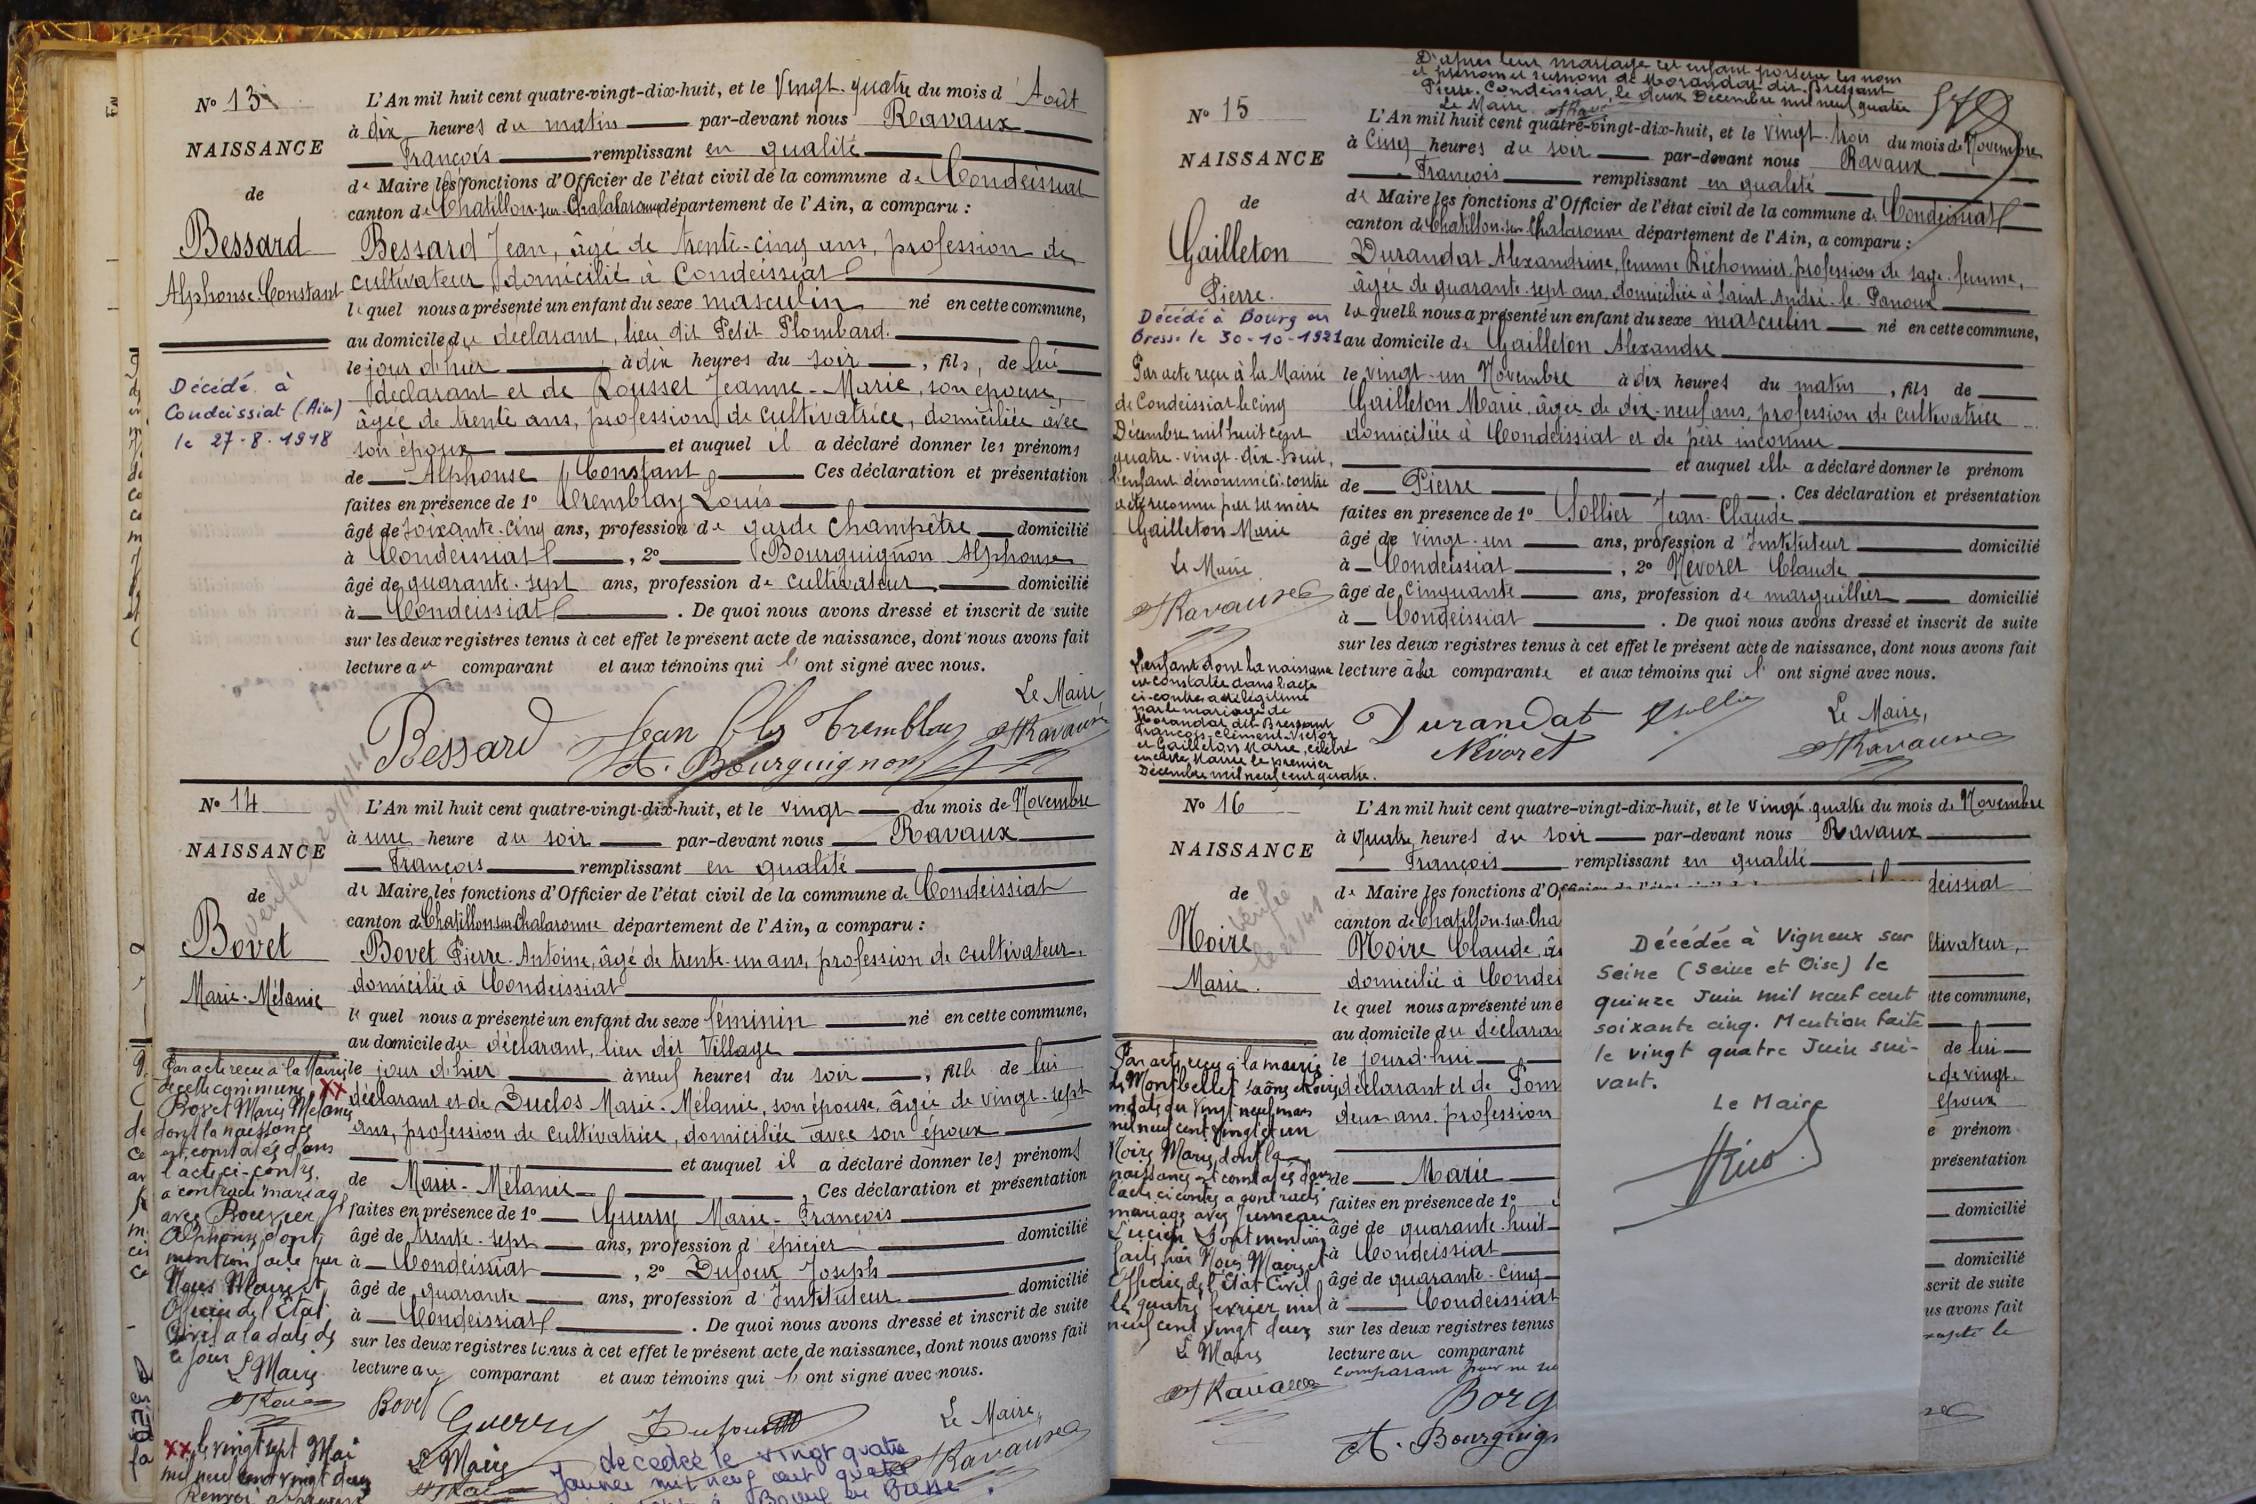 N° 13
NAISSANCE
de
Bessard
Alphonse Constant
Décédé à
Condeissiat (Ain)
le 27-8-1918
L'An mil huit cent quatre-vingt-dix-huit, et le Vingt-quatre du mois d'Août
à dix heures du matin par-devant nous Ravaux
François remplissant en qualité
de Maire les fonctions d'Officier de l'état civil de la commune de Condeissiat
canton de Chatillon-sur-Chalaronne département de l'Ain, a comparu :
Bessard Jean, âgé de trente-cinq ans, profession de
cultivateur, domicilié à Condeissiat
lequel nous a présenté un enfant du sexe masculin né en cette commune,
au domicile du déclarant, lieu dit Petit Plombard.
le jour d'hier à dix heures du soir, fils, de lui
déclarant et de Rousset Jeanne-Marie, son épouse,
âgée de trente ans, profession de cultivatrice, domiciliée avec
son époux et auquel il a déclaré donner les prénoms
de Alphonse Constant Ces déclaration et présentation
faites en présence de 1° Tremblay Louis
âgé de soixante-cinq ans, profession de garde champêtre domicilié
à Condeissiat, 2° Bourguignon Alphonse
âgé de quarante-sept ans, profession de cultivateur domicilié
à Condeissiat. De quoi nous avons dressé et inscrit de suite
sur les deux registres tenus à cet effet le présent acte de naissance, dont nous avons fait
lecture au comparant et aux témoins qui l'ont signé avec nous.
Le Maire
Bessard Jean Tremblay Ravaux
A. Bourguignon
N° 14
NAISSANCE
de
Bovet
Marie-Mélanie
Par acte reçu à la Mairie
de cette commune, XX
Bovet Marie Mélanie
dont la naissance
est constatée dans
l'acte ci-contre
a contracté mariage
avec Bouvier
Alphonse dont
mention faite par
Nous Maire et
Officier de l'Etat
Civil à la date de
ce jour
Le Maire
XX le vingt sept Mai
mil neuf cent vingt deux
L'An mil huit cent quatre-vingt-dix-huit, et le vingt du mois de Novembre
à une heure du soir par-devant nous Ravaux
François remplissant en qualité
de Maire les fonctions d'Officier de l'état civil de la commune de Condeissiat
canton de Chatillon sur Chalaronne département de l'Ain, a comparu :
Bovet Pierre-Antoine, âgé de trente-un ans, profession de cultivateur,
domicilié à Condeissiat
lequel nous a présenté un enfant du sexe féminin né en cette commune,
au domicile du déclarant, lieu dit Village
le jour d'hier à neuf heures du soir, fille de lui
déclarant et de Duclos Marie-Mélanie, son épouse, âgée de vingt-sept
ans, profession de cultivatrice, domiciliée avec son époux
et auquel il a déclaré donner les prénoms
de Marie-Mélanie, Ces déclaration et présentation
faites en présence de 1° Guerry Marie-François
âgé de trente-sept ans, profession d'épicier domicilié
à Condeissiat, 2° Dufour Joseph
âgé de quarante ans, profession d'Instituteur domicilié
à Condeissiat. De quoi nous avons dressé et inscrit de suite
sur les deux registres tenus à cet effet le présent acte de naissance, dont nous avons fait
lecture au comparant et aux témoins qui l'ont signé avec nous.
Bovet Guerry Dufour Le Maire,
Ravaux
Le Maire
décédée le vingt quatre
Janvier mil neuf cent quatre
Bourg en Bresse.
D'après leur mariage cet enfant portera les nom
et prénom et surnom de Morandat dit Bressant
Pierre. Condeissiat, le deux Décembre mil neuf quatre
Le Maire
N° 15
NAISSANCE
de
Gailleton
Pierre.
Décédé à Bourg en
Bresse le 30-10-1921
Par acte reçu à la Mairie
de Condeissiat le cinq
Décembre mil huit cent
quatre-vingt-dix-huit,
l'enfant dénommé ci-contre
a été reconnu par sa mère
Gailleton Marie
Le Maire
Ravaux
L'enfant dont la naissance
est constatée dans l'acte
ci-contre a été légitimé
par le mariage de
Morandat dit Bressant
François-Clément-Victor
et Gailleton Marie, célébré
en cette Mairie le premier
Décembre mil neuf cent quatre.
L'An mil huit cent quatre-vingt-dix-huit, et le vingt-trois du mois de Novembre
à cinq heures du soir par-devant nous Ravaux
François remplissant en qualité
de Maire les fonctions d'Officier de l'état civil de la commune de Condeissiat
canton de Chatillon-sur-Chalaronne département de l'Ain, a comparu :
Durandat Alexandrine, femme Richonnier, profession de sage-femme,
âgée de quarante-sept ans, domiciliée à Saint André-le-Panoux
laquelle nous a présenté un enfant du sexe masculin né en cette commune,
au domicile de Gailleton Alexandre
le vingt-un Novembre à dix heures du matin, fils de
Gailleton Marie, âgée de dix-neuf ans, profession de cultivatrice
domiciliée à Condeissiat et de père inconnu
et auquel elle a déclaré donner le prénom
de Pierre. Ces déclaration et présentation
faites en présence de 1° Sollier Jean-Claude
âgé de vingt-un ans, profession d'Instituteur domicilié
à Condeissiat, 2° Nevoret Claude
âgé de cinquante ans, profession de marguillier domicilié
à Condeissiat. De quoi nous avons dressé et inscrit de suite
sur les deux registres tenus à cet effet le présent acte de naissance, dont nous avons fait
lecture à la comparante et aux témoins qui l'ont signé avec nous.
Durandat Le Maire,
Névoret Ravaux
N° 16
NAISSANCE
de
Noire
Marie.
Vérifié
Par acte reçu à la mairie
de Montbellet Saône et Loire
en date du vingt neuf mars
mil neuf cent vingt et un
Noire Marie dont la
naissance est constatée dans
l'acte ci contre a contracté
mariage avec Jumeau
Lucien Dont mention
faite par Nous Maire et
Officier de l'Etat Civil
le quatre février mil
neuf cent vingt deux
Le Maire
Ravaux
L'An mil huit cent quatre-vingt-dix-huit, et le vingt-quatre du mois de Novembre
à quatre heures du soir par-devant nous Ravaux
François remplissant en qualité
de Maire les fonctions d'Of deissiat
canton de Chatillon-sur-Cha
Noire Claude, â ltivateur,
domicilié à Condei
lequel nous a présenté un e tte commune,
au domicile du déclaran
le jour d'hui de lui
déclarant et de Pom de vingt-
deux ans, profession époux
prénom
de Marie présentation
faites en présence de 1°
âgé de quarante-huit domicilié
à Condeissiat
âgé de quarante-cinq domicilié
à Condeissiat scrit de suite
sur les deux registres tenus us avons fait
lecture au comparant excepté le
comparant pour ne
Borg
A. Bourguig
Décédée à Vigneux sur
Seine (Seine et Oise) le
quinze Juin mil neuf cent
soixante cinq. Mention faite
le vingt quatre Juin sui-
vant.
Le Maire